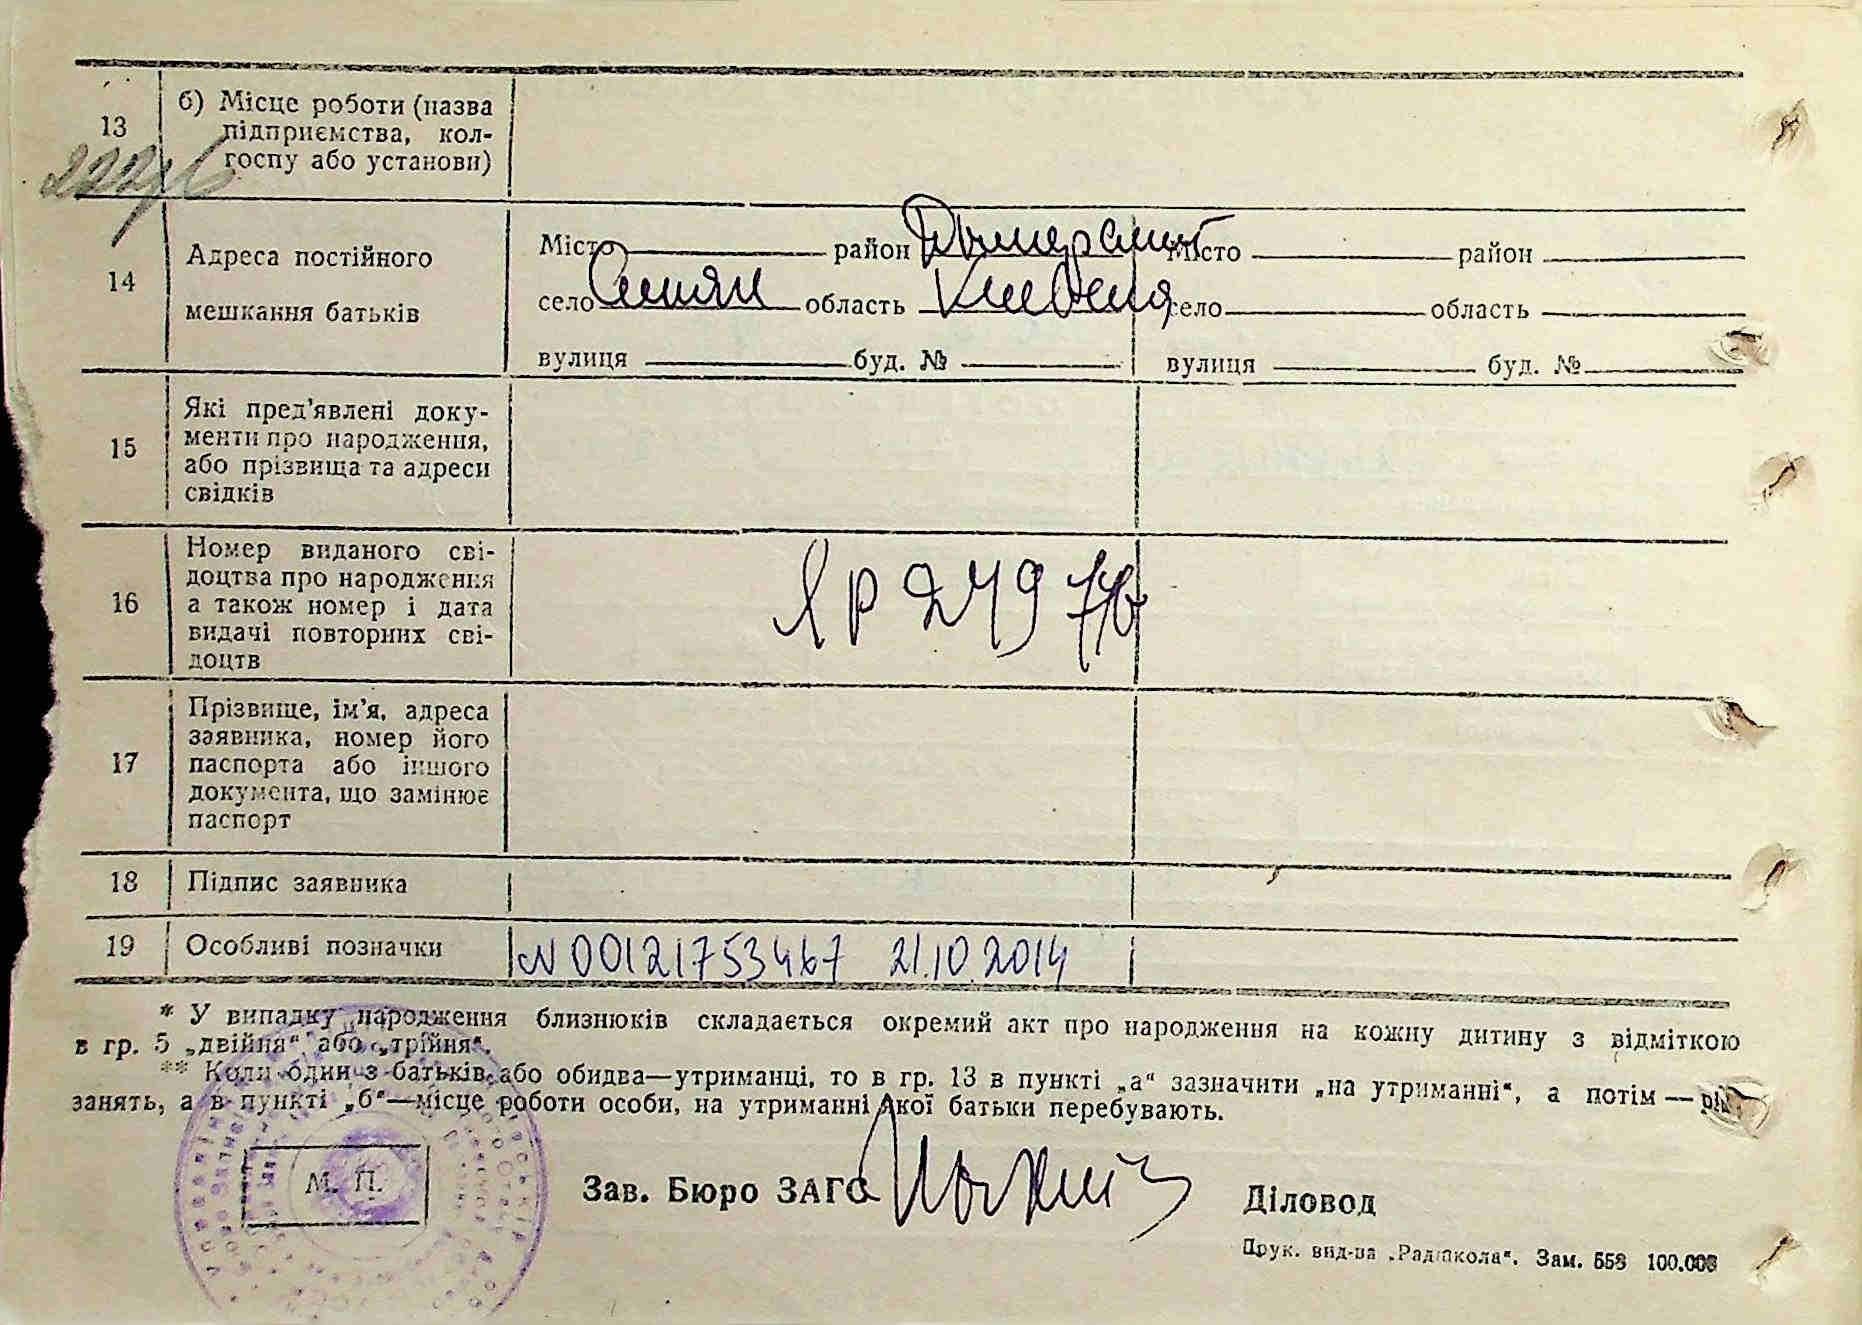 13 б) Місце роботи (назва
підприємства, кол-
госпу або установи)
14 Адреса постійного
мешкання батьків
Місто район Димерський
село область Київська
вулиця буд. №
Місто район
село область
вулиця буд. №
15 Які пред'явлені доку-
менти про народження,
або прізвища та адреси
свідків
16 Номер виданого сві-
доцтва про народження
а також номер і дата
видачі повторних сві-
доцтв
ЯР 249776
17 Прізвище, ім'я, адреса
заявника, номер його
паспорта або іншого
документа, що замінює
паспорт
18 Підпис заявника
19 Особливі позначки N 00121753467 21.10.2014
* У випадку народження близнюків складається окремий акт про народження на кожну дитину з відміткою
в гр. 5 „двійня“ або „трійня“.
** Коли один з батьків, або обидва—утриманці, то в гр. 13 в пункті „а“ зазначити „на утриманні“, а потім —
занять, а в пункті „б“—місце роботи особи, на утриманні якої батьки перебувають.
М. П.
Зав. Бюро ЗАГС
Діловод
Друк. вид-ва „Рад. школа“. Зам. 558 100.000